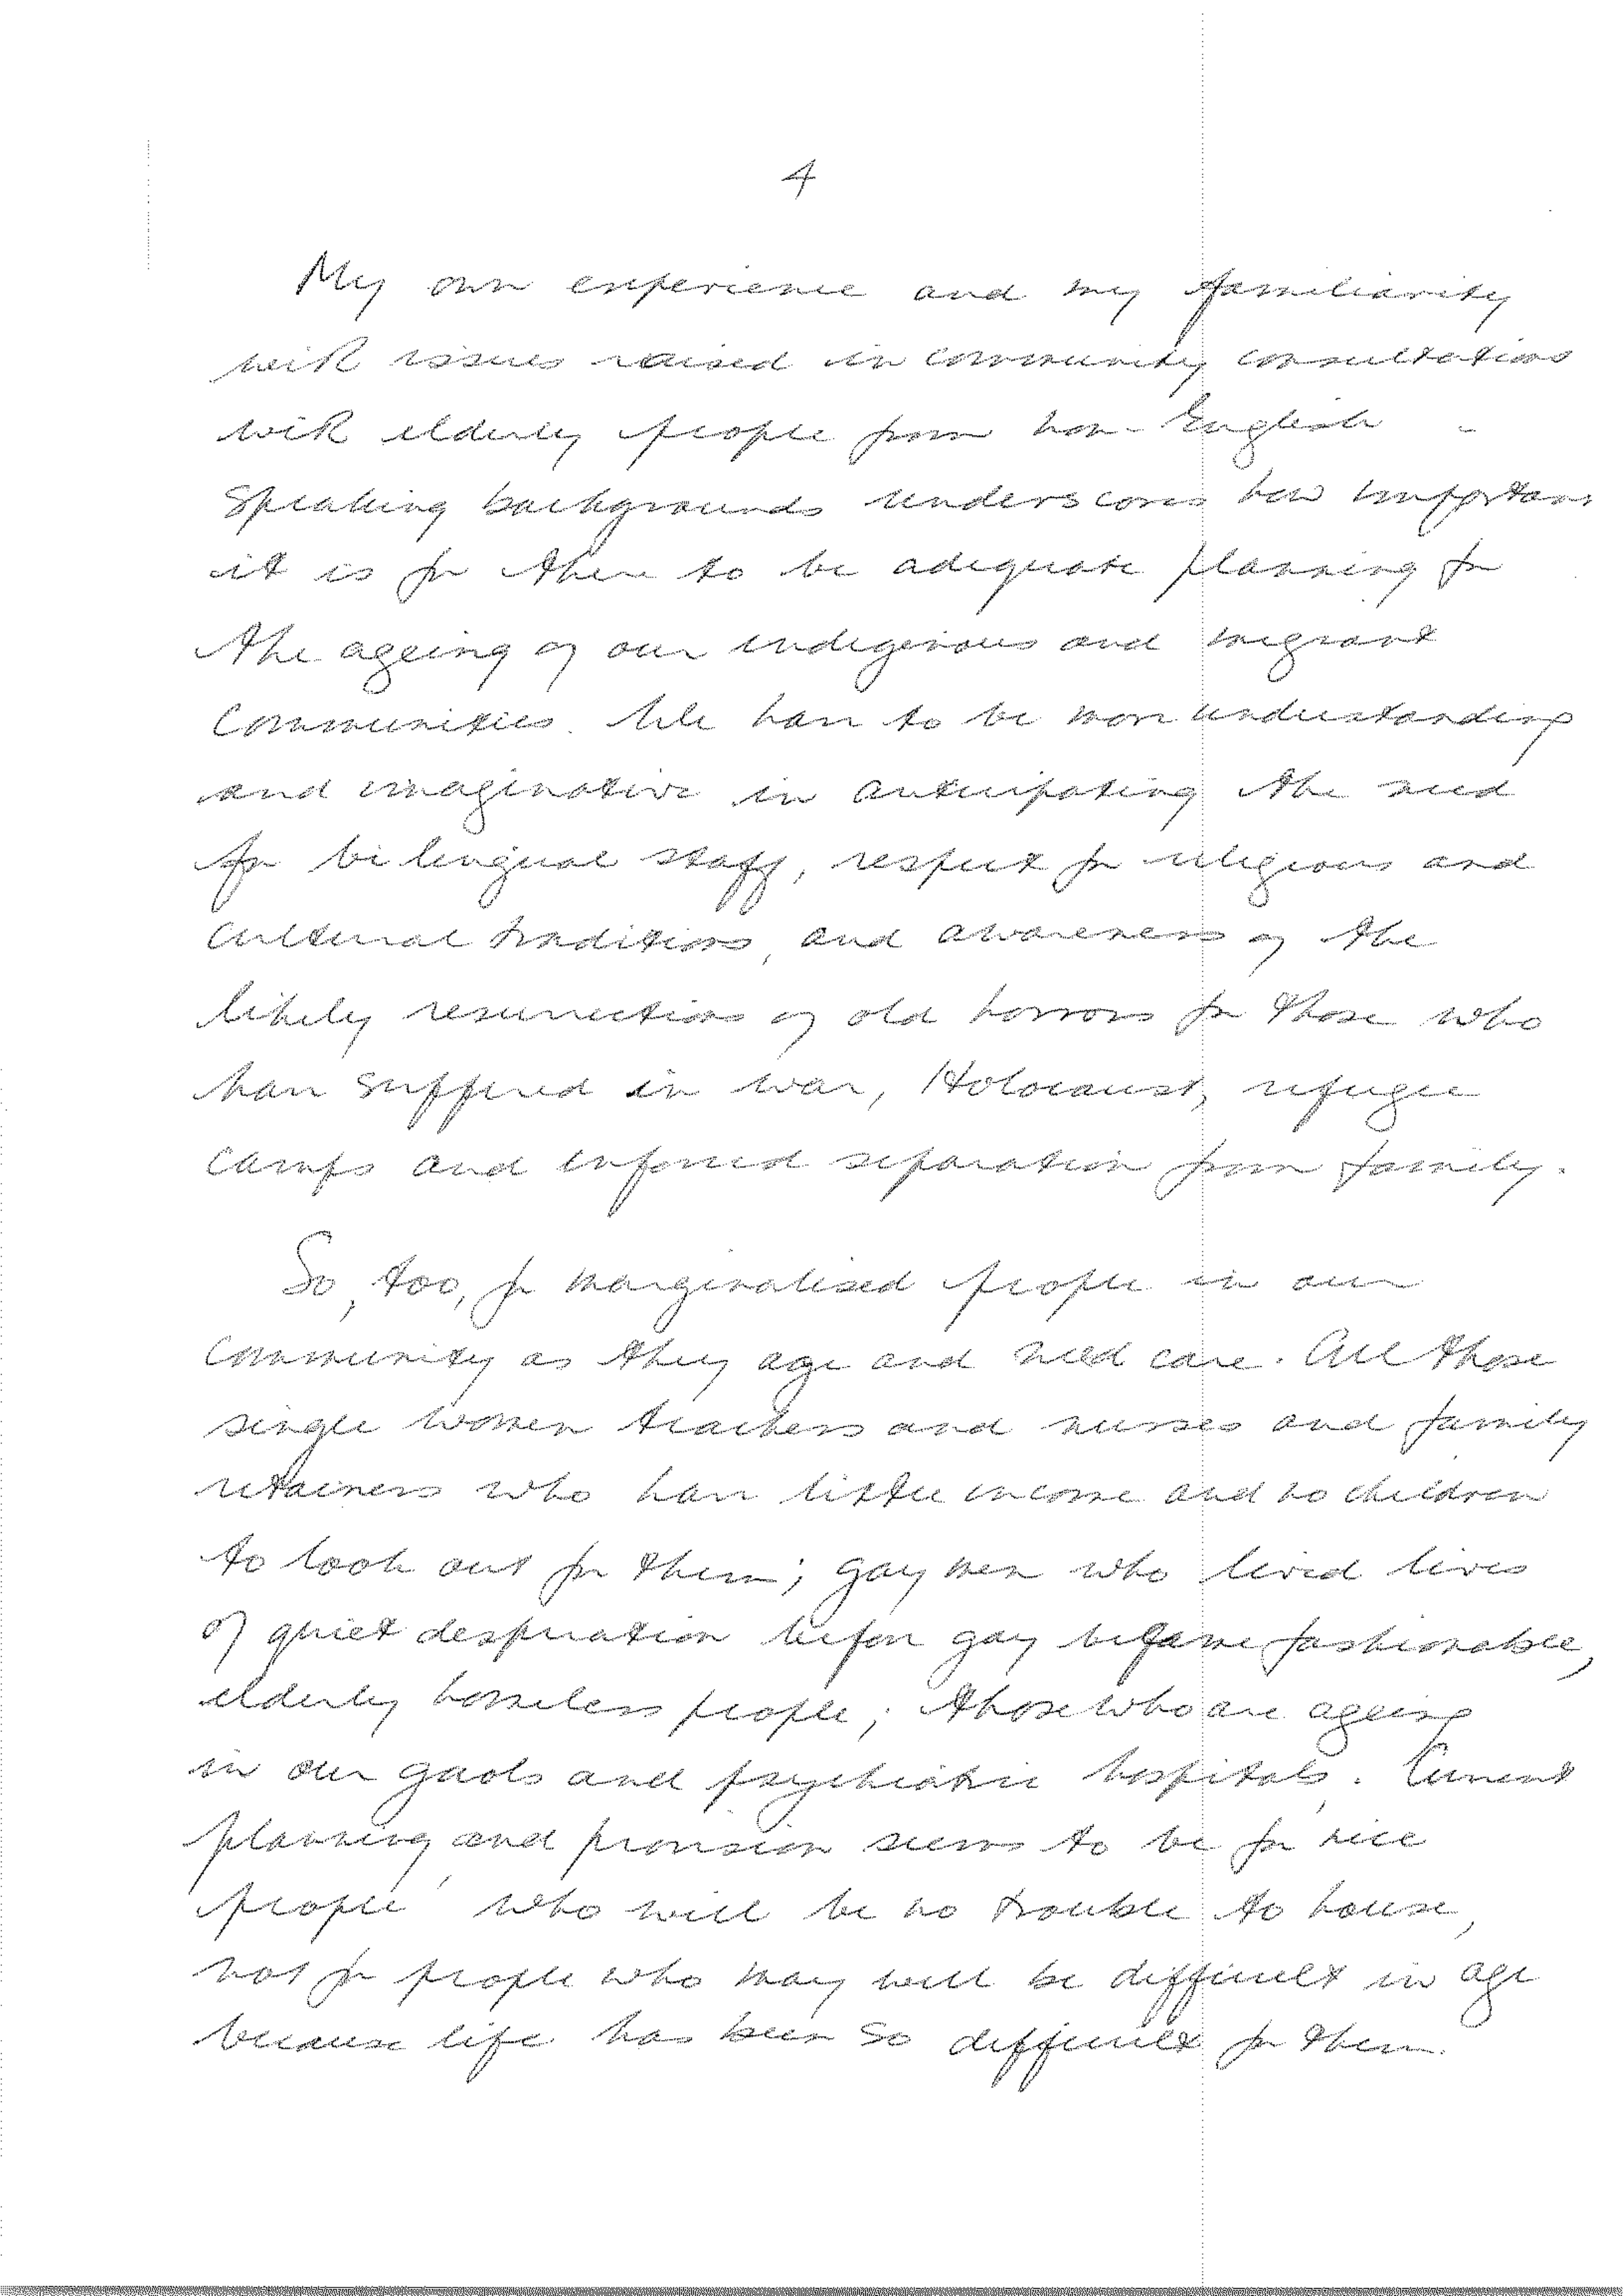 4
My own experience and my familiarity
with issues raised in community consultations
with elderly people from non-English -
speaking backgrounds underscores how important
it is for there to be adequate planning for
the ageing of our indigenous and migrant
communities. We have to be more understanding
and imaginative in anticipating the need
for bilingual staff, respect for religious and
cultural traditions, and awareness of the
likely resurrection of old horrors for those who
have suffered in war, Holocaust, refugee
camps and enforced separation from family.
So, too, for marginalised people in our
community as they age and need care. All those
single women teachers and nurses and family
retainers who have little income and no children
to look out for them; gay men who lived lives
of quiet desperation before gay became fashionable,
elderly homeless people; those who are ageing
in our gaols and psychiatric hospitals. Current
planning and provision seems to be for nice
people who will be no trouble to house,
not for people who may well be difficult in age
because life has been so difficult for them.